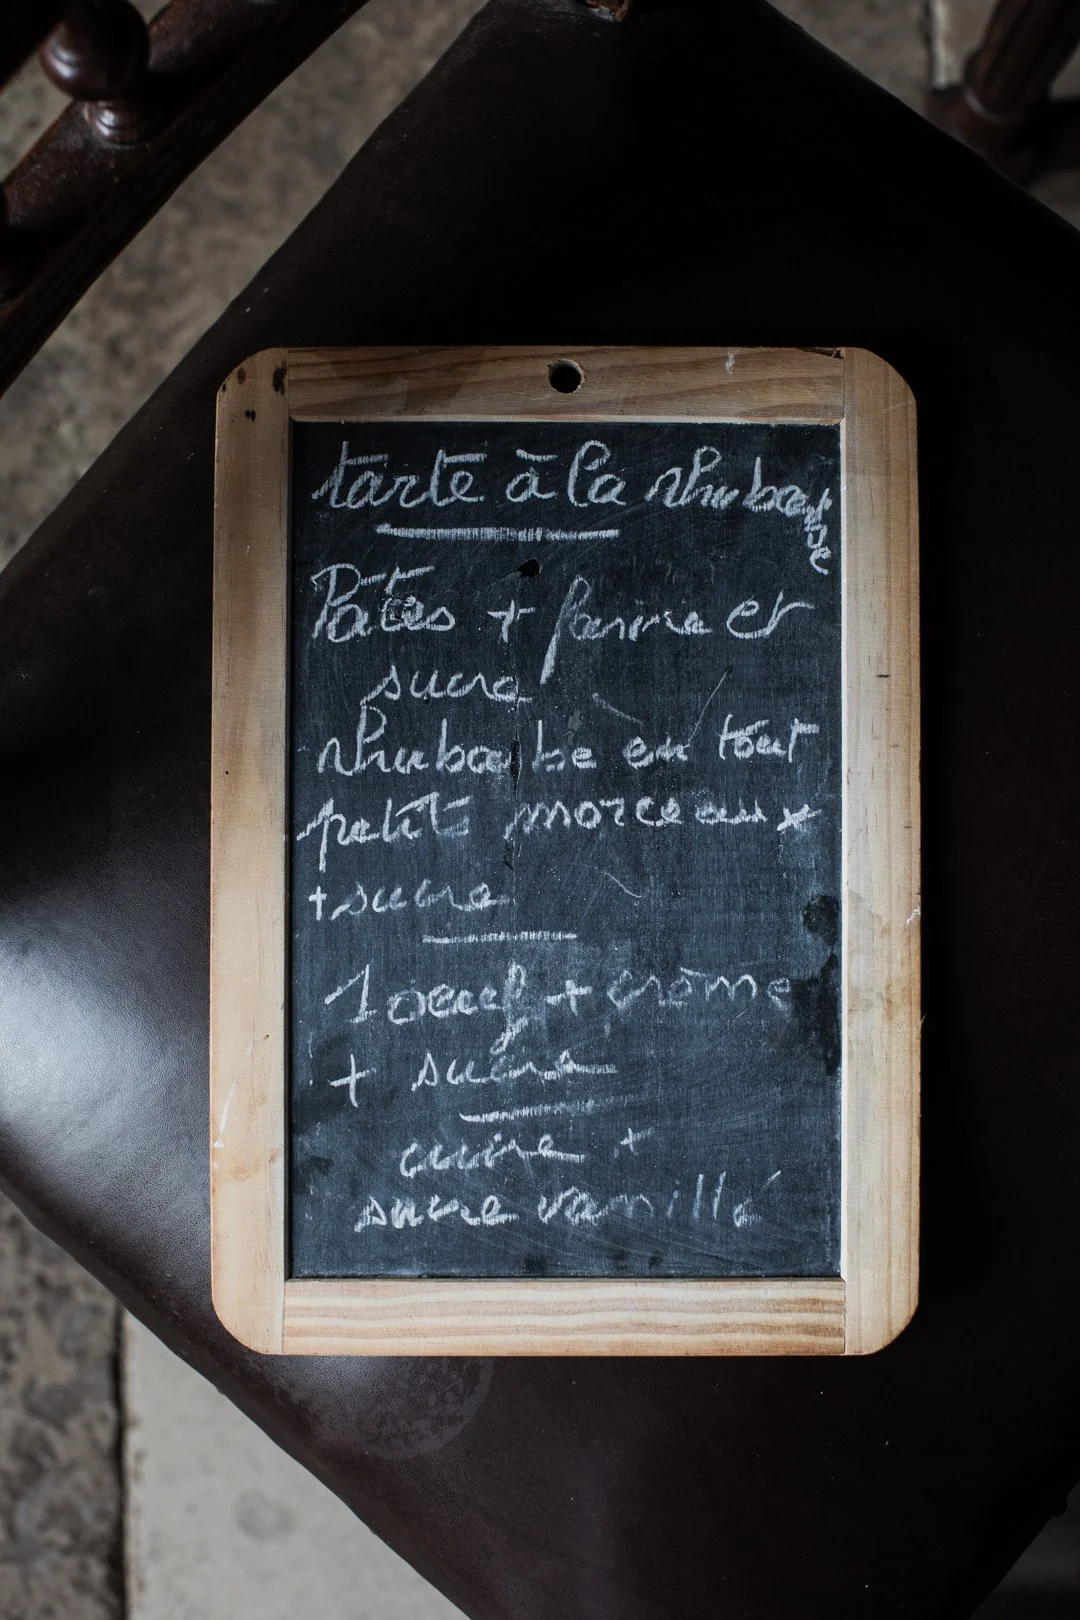 tarte à la rhubarbe
Pâtes + farine et
sucre
rhubarbe en tout
petits morceaux
+ sucre
1 oeuf + crème
+ sucre
cuire +
sucre vanillé